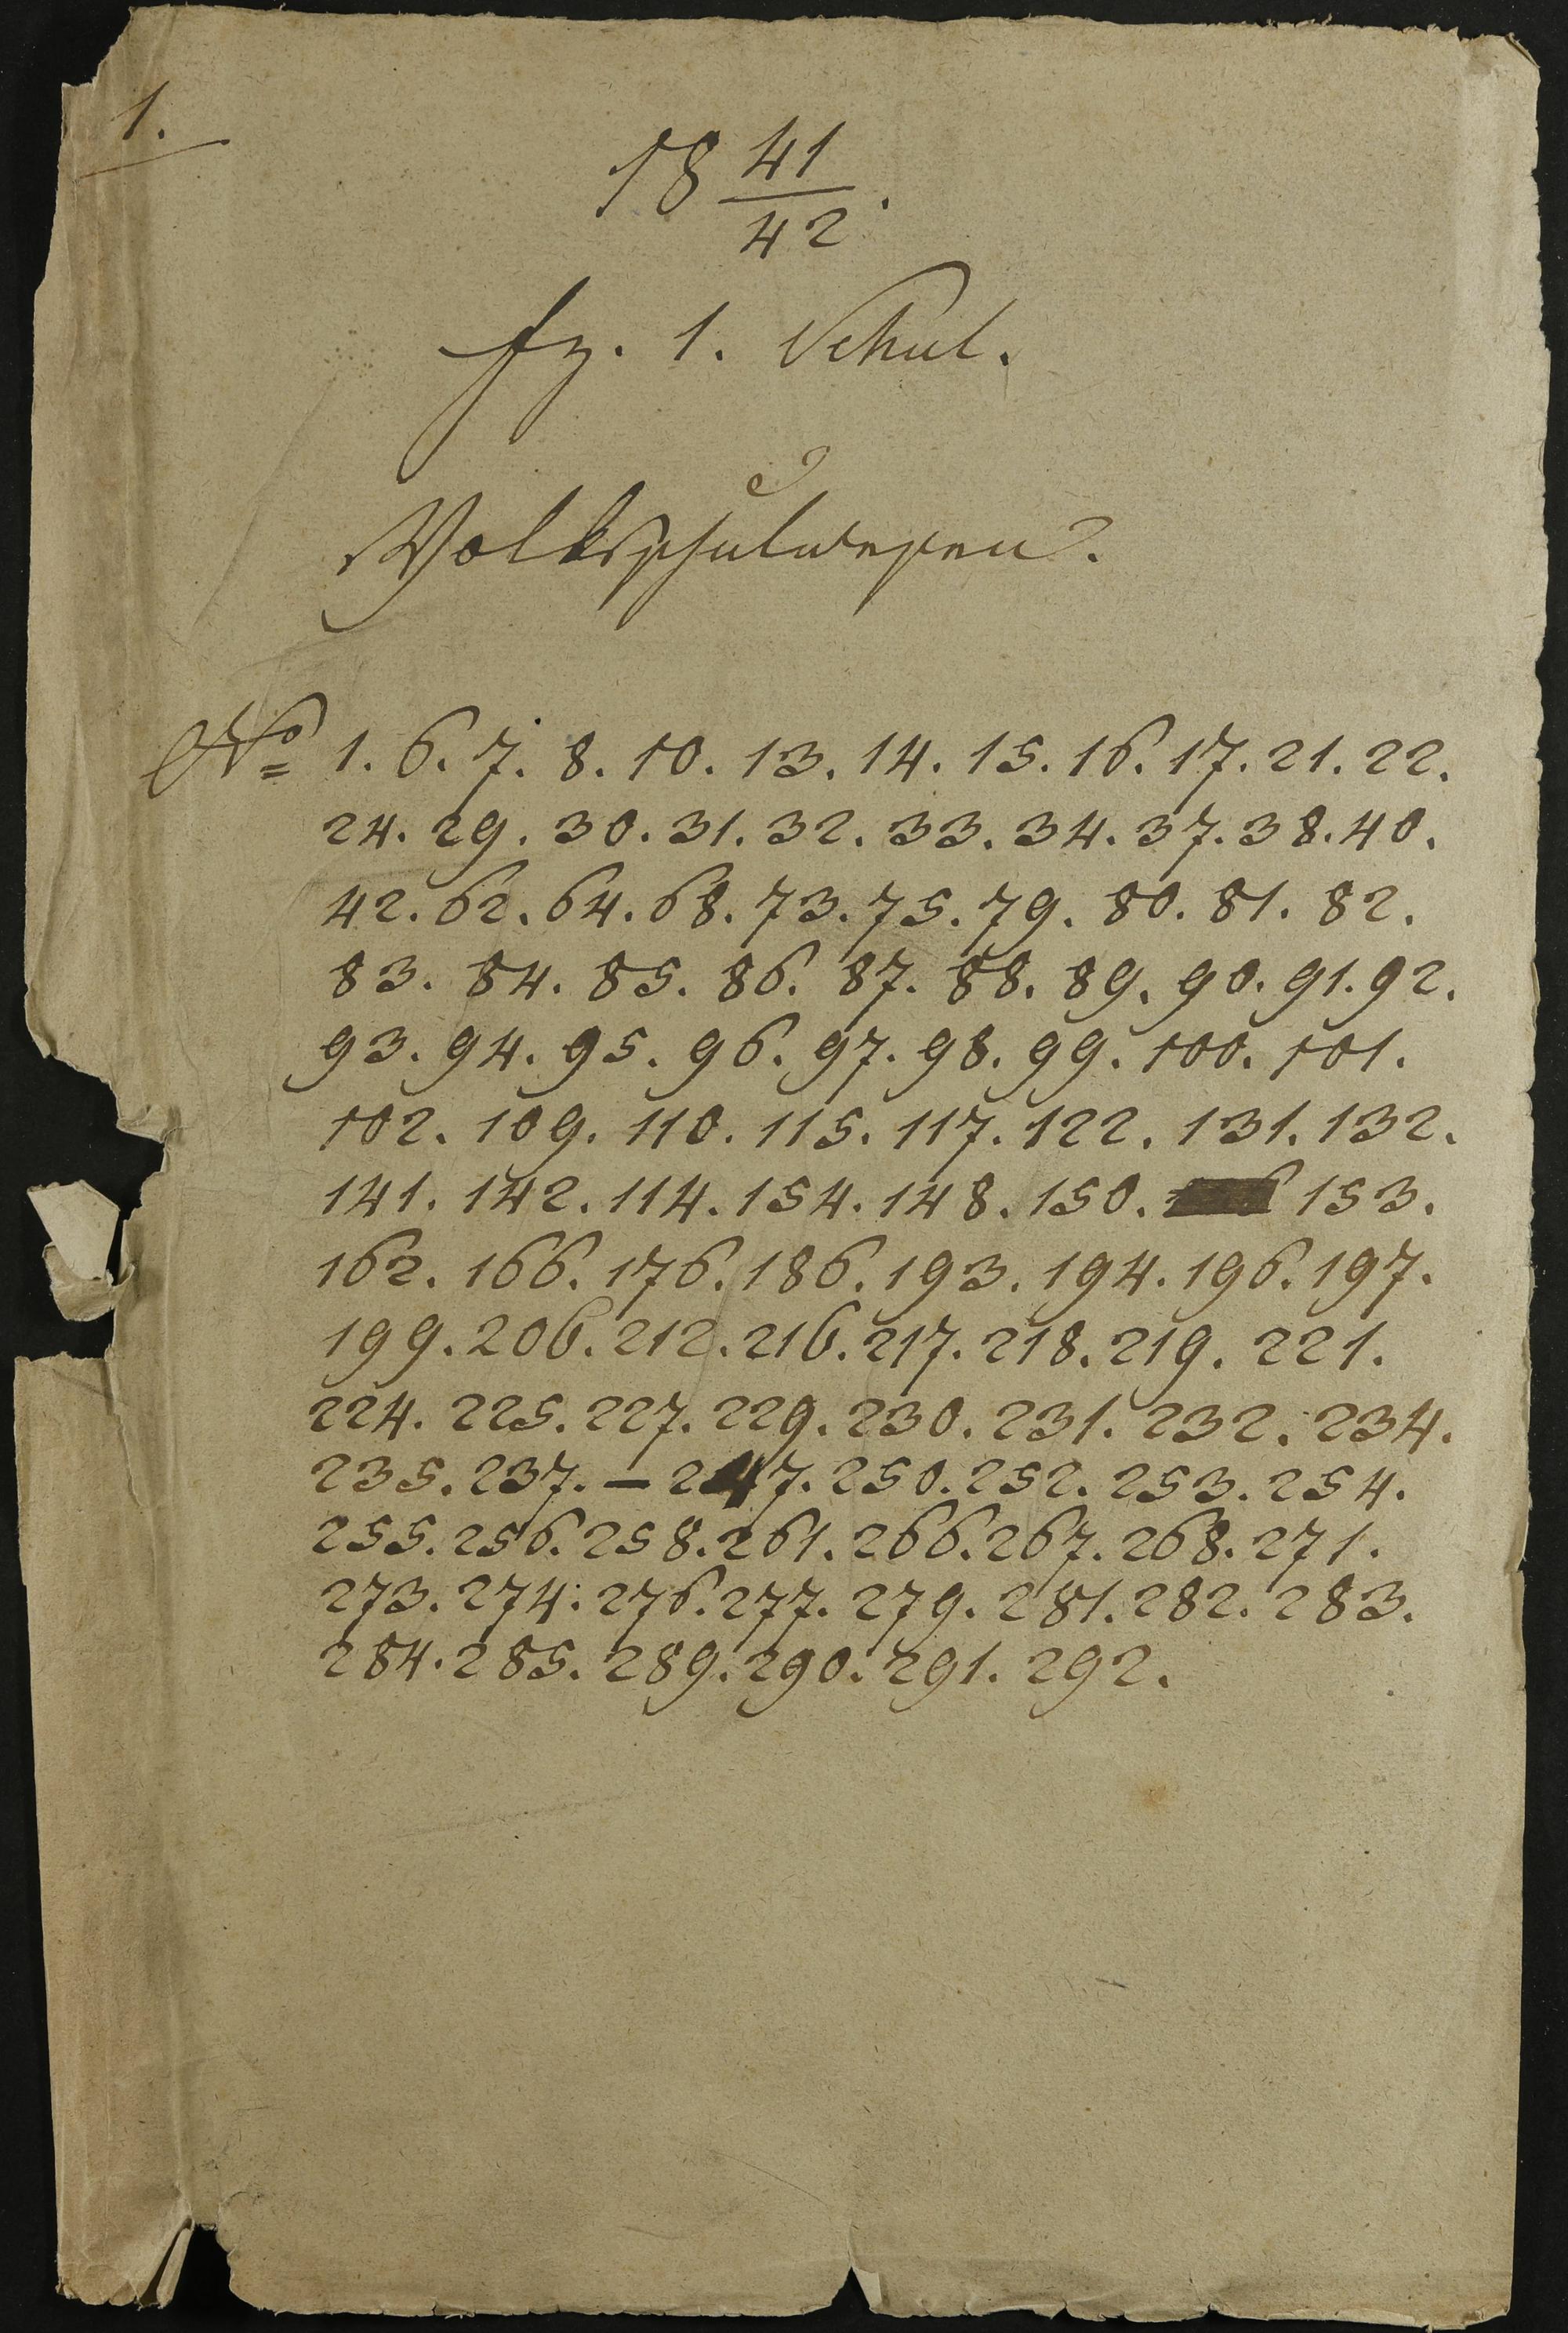 1.
18 41/42.
fz. 1. Schul.
Volksschulwesen.
No 1. 6. 7. 8. 10. 13. 14. 15. 16. 17. 21. 22.
24. 29. 30. 31. 32. 33. 34. 37. 38. 40.
42. 62. 64. 68. 73. 75. 79. 80. 81. 82.
83. 84. 85. 86. 87. 88. 89. 90. 91. 92.
93. 94. 95. 96. 97. 98. 99. 100. 101.
102. 109. 110. 115. 117. 122. 131. 132.
141. 142. 114. 154. 148. 150. 153.
162. 166. 176. 186. 193. 194. 196. 197.
199. 206. 212. 216. 217. 218. 219. 221.
224. 225. 227. 229. 230. 231. 232. 234.
235. 237. – 247. 250. 252. 253. 254.
255. 256. 258. 261. 266. 267. 268. 271.
273. 274. 276. 277. 279. 281. 282. 283.
284. 285. 289. 290. 291. 292.